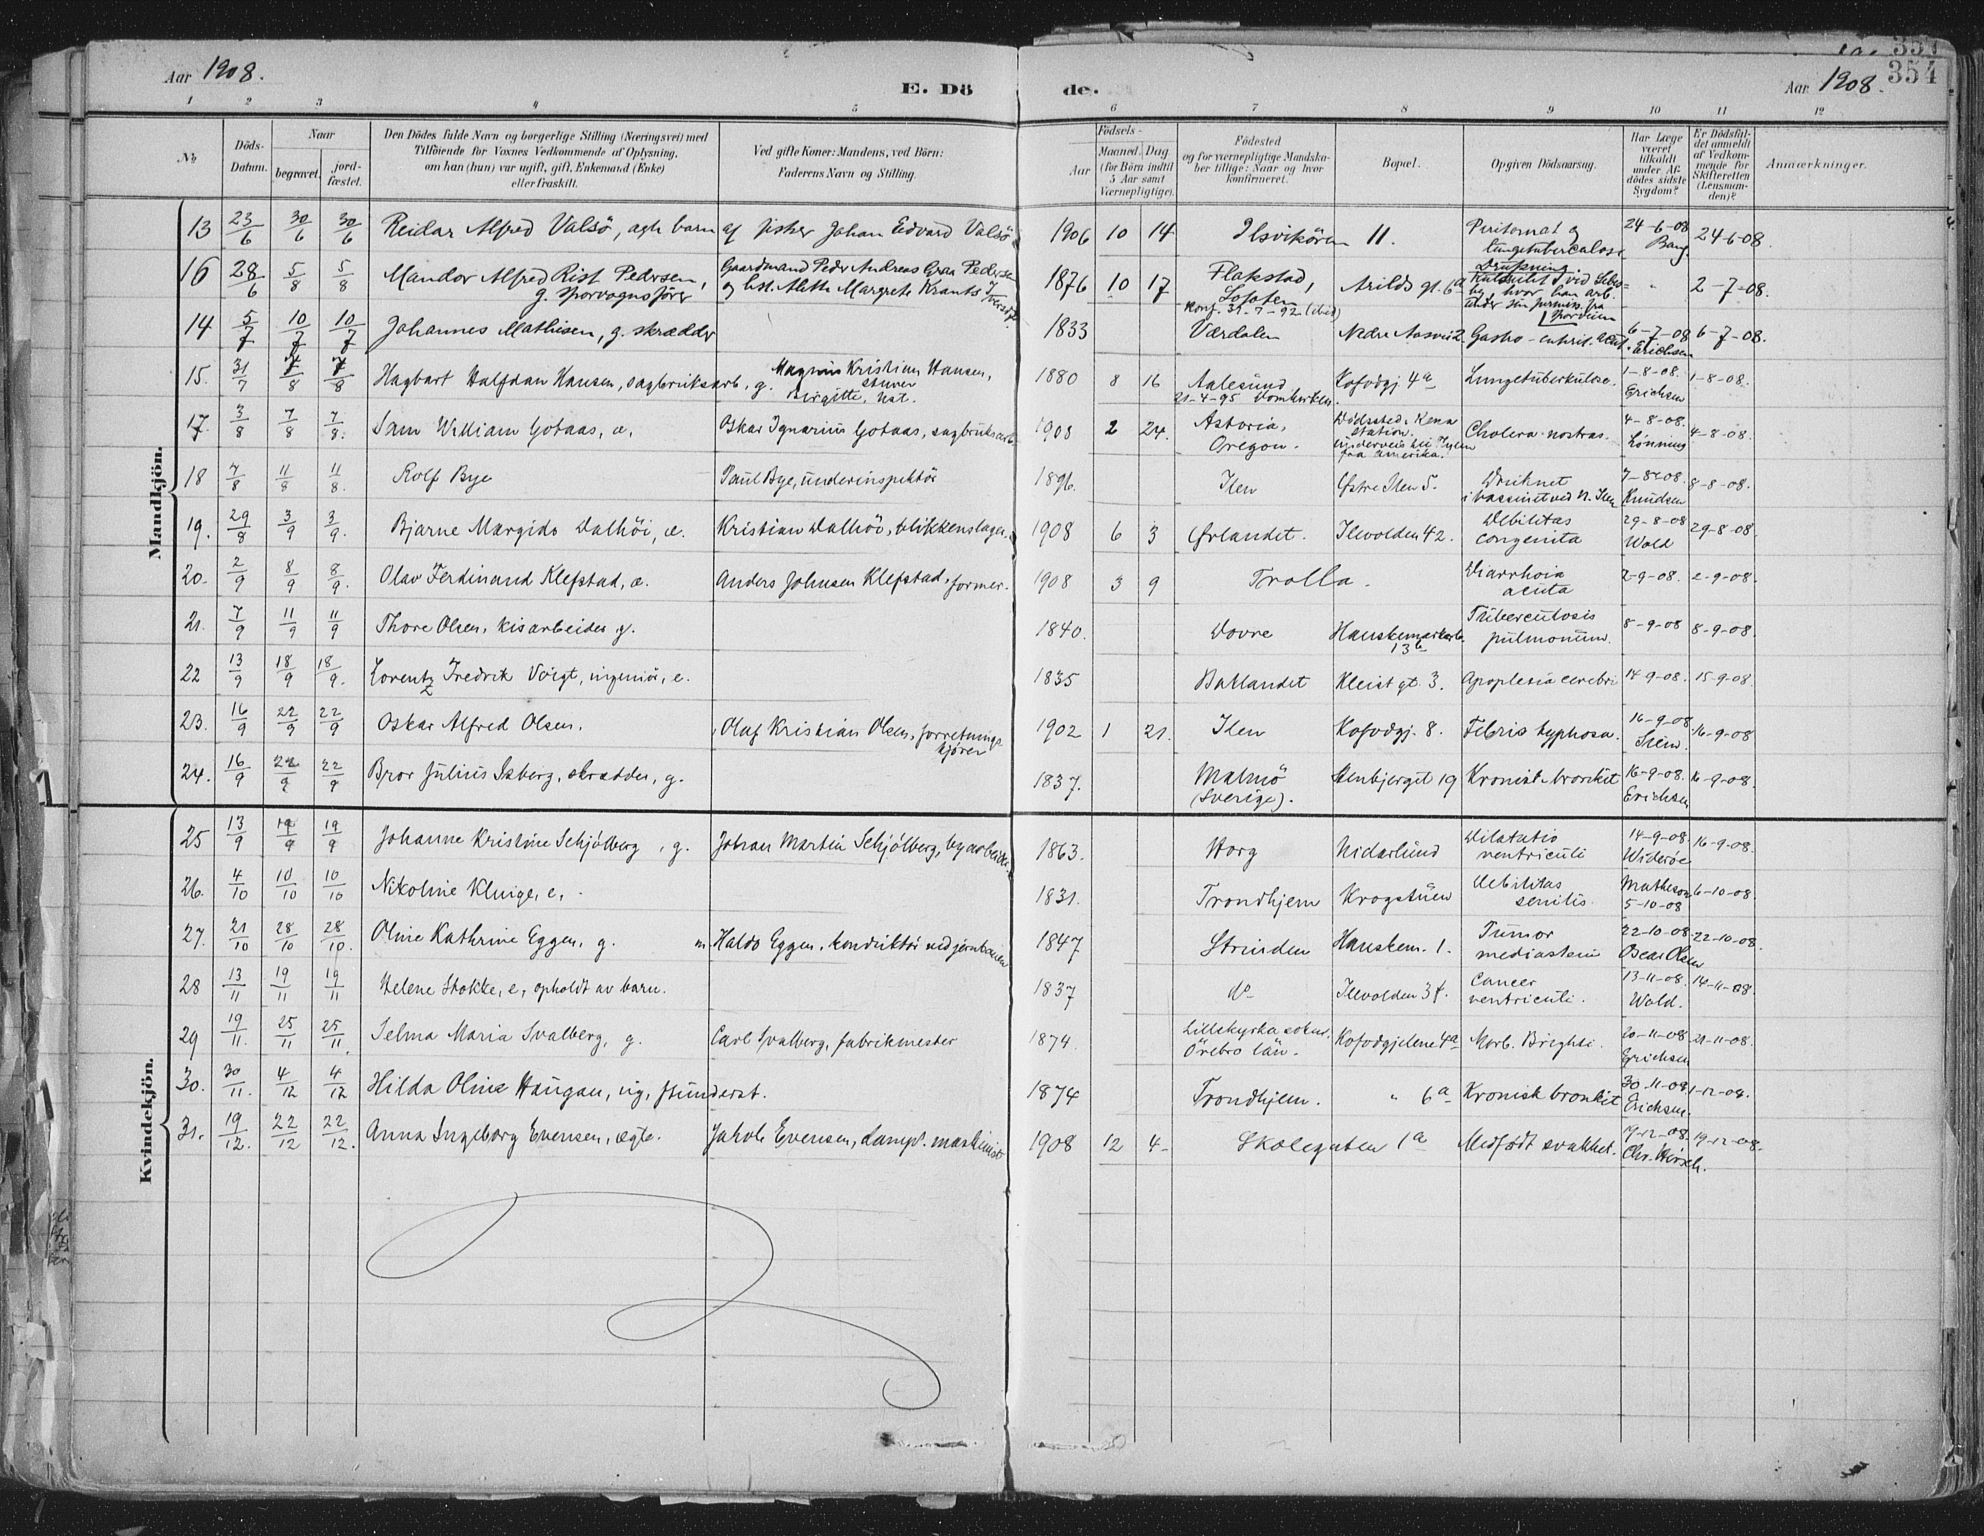 Aar 1908.
E. Dö
de.
Aar 1908.
354
1 2 3 4 5 6 7 8 9 10 11 12
No
Döds-Datum.
Naar
begravet.
jord-fæstet.
Den Dödes fulde Navn og borgerlige Stilling (Næringsvei) med
Tilföiende for Voxnes Vedkommende af Oplysning,
om han (hun) var ugift, gift, Enkemand (Enke)
eller fraskilt.
Ved gifte Koner: Mandens, ved Börn:
Faderens Navn og Stilling.
Födsels-
Aar
Maaned. Dag
(for Börn indtil
5 Aar samt
Værnepligtige).
Födested
og for værnepligtige Mandska-
ber tillige: Naar og hvor
konfirmeret.
Bopæl.
Opgiven Dödsaarsag.
Har Læge
været
tilkaldt
under Af-
dödes sidste
Sygdom?
Er Dödsfal-
det anmeldt
af Vedkom-
mende for
Skifteretten
(Lensman-
den)?
Anmærkninger.
Mandkjön.
13 23/6 30/6 30/6 Reidar Alfred Valsö, agte barn af fisker Johan Edvard Valsö 1906 10 14 Ilsvikören 11. Peritornat og lungetuberculose 24-6-08 Bang 24-6-08.
16 28/6 5/8 5/8 Mandor Alfred Rist Pedersen, g. sporvognsfører Gaardmand Peder Andreas Graa Pedersen og hst. Aletta Margrete Krants 1876 10 17 Flakstad, Lofoten Konf. 31-7-92 (ibid) Arilds gt. 6a Drukning. " 2-7-08.
14 5/7 10/7 10/7 Johannes Mathisen, g. skrædder 1833 Værdalen Nedre Aasvei 2. Gastro-enterit. acut. 6-7-08 Erichsen 6-7-08.
15. 31/7 7/8 7/8 Hagbart Halfdan Hansen, sagbruksarb, g. Magnus Kristian Hansen, stuver Birgitte, hst. 1880 8 16 Aalesund 21-4-95 Domkirken. Kofodgj 4a Lungetuberkulose. 1-8-08. Erichsen 1-8-08.
17. 3/8 7/8 7/8. Sam William Gotaas, æ. Oskar Ignarius Gotaas, sagbruksarb. 1908 2 24. Astoria, Oregon. Dödssted: station. underveis fra Amerika. Cholera nostras. 4-8-08. Lönning 4-8-08.
18 7/8 11/8 11/8. Rolf Bye Paul Bye, underinspektör 1896. Ilen Østre Ilen 5. Druknet i bassinet ved N. Ilen 7-8-08. Knudsen 8-8-08.
19. 29/8 3/9 3/9. Bjarne Margido Dalhöi, æ. Kristian Dalhöi, blikkenslager. 1908 6 3 Ørlandet. Ilevolden 42. Debilitas congenita 29-8-08 Wold 29-8-08.
20. 2/9 8/9 8/9. Olav Ferdinand Klefstad, æ. Anders Johnsen Klefstad, former. 1908 3 9 Trolla. Diarrhoia acuta 2-9-08. 2-9-08.
21. 7/9 11/9 11/9 Thore Olsen, kisarbeider g. 1840. Dovre 13b Tuberculosis pulmonum. 8-9-08 8-9-08.
22 13/9 18/9 18/9. Lorentz Fredrik Voigt, ingeniör, e. 1835 Batlandet Kleist gt. 3. Apoplexia cerebri 14-9-08. 15-9-08.
23. 16/9 22/9 22/9 Oskar Alfred Olsen. Olaf Kristian Olsen, forretningskjörer 1902 1 21. Ilen Kofodgj. 8. Febris typhosa. 16-9-08 16-9-08
24. 16/9 22/9 22/9 Bror Julius Isberg, skrædder, g. 1837. Malmö (Sverige). Stenbjerget 19 Kronisk bronkit 16-9-08. Erichsen 16-9-08.
Kvindekjön.
25 13/9 19/9 19/9 Johanne Kristine Schjölberg, g. Johan Martin Schjölberg, byarbeider 1863. Horg Nidarlund Dilatatio ventriculi 14-9-08. Wideröe 16-9-08.
26. 4/10 10/10 10/10 Nikoline Kluige, e. 1831. Trondhjem Krogstuen Debilitas senilis. Matheson 5-10-08 6-10-08.
27. 21/10 28/10 28/10. Oline Kathrine Eggen, g. m. Haldo Eggen, konduktör ved jernbanen 1847 Strinden Hanskem. 1. Tumor mediastini 22-10-08 Olsen 22-10-08.
28 13/11 19/11 19/11 Helene Stokke, e, opholdt av barn. 1837 do Ilevolden 34. Cancer ventriculi. 13-11-08. Wold. 14-11-08.
29 19/11. 25/11 25/11. Selma Maria Svalberg, g. Carl Svalberg, fabrikmester 1874. Lillekyrka sokn. Örebro län. Kofodgjelene 4a Morb. Brighti. 20-11-08 Erichsen 21-11-08.
30. 30/11. 4/12 4/12 Hilda Oline Haugan, ug, funderst. 1874 Trondhjem. " 6a Kronisk bronkit 30-11-08 Erichsen. 1-12-08.
31. 19/12. 22/12 22/12. Anna Ingeborg Evensen, ægte. Jakob Evensen, damps. maskinist 1908 12 4. Skolegaten 1a Medfödt svakhet. 19-12-08. Chr. Hirsch. 19-12-08.